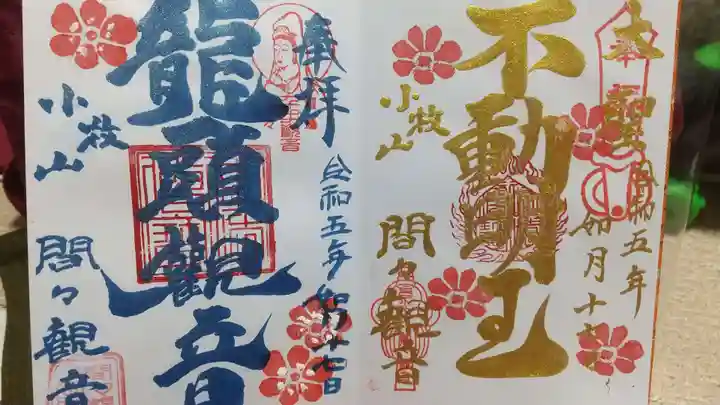 奉拝
令和五年如月十七日
龍頭観音
小牧山
間々観音
奉拝
令和五年
如月十七
不動明王
小牧山
間々観音